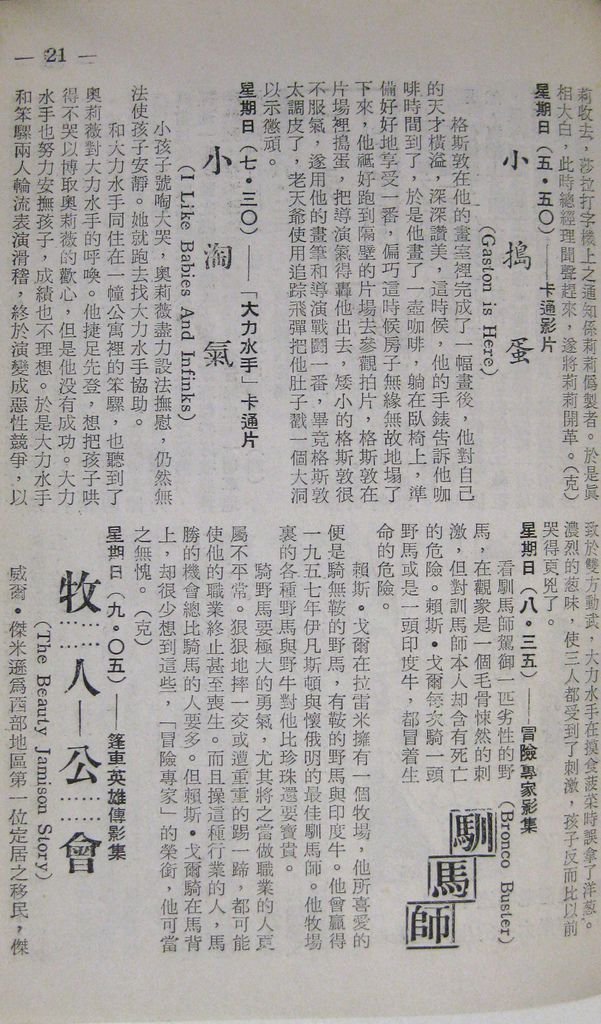 — 21 —
莉收去，莎拉打字機上之通知係莉莉僞製者。於是眞
相大白，此時總經理聞聲趕來，遂將莉莉開革。（克）
星期日（五・五〇）——卡通影片
小搗蛋
(Gaston is Here)
格斯敦在他的畫室裡完成了一幅畫後，他對自己
的天才橫溢，深深讚美，這時候，他的手錶告訴他咖
啡時間到了，於是他畫了一壺咖啡，躺在臥椅上，準
備好好地享受一番，偏巧這時候房子無緣無故地塌了
下來，他祗好跑到隔壁的片場去參觀拍片，格斯敦在
片場裡搗蛋，把導演氣得轟他出去，矮小的格斯敦很
不服氣，遂用他的畫筆和導演戰鬪一番，畢竟格斯敦
太調皮了，老天爺使用追踪飛彈把他肚子戳一個大洞
以示懲頑。
星期日（七・三〇）——「大力水手」卡通片
小淘氣
(I Like Babies And Infinks)
小孩子號啕大哭，奧莉薇盡力設法撫慰，仍然無
法使孩子安靜。她就跑去找大力水手協助。
和大力水手同住在一幢公寓裡的笨騾，也聽到了
奧莉薇對大力水手的呼喚。他捷足先登，想把孩子哄
得不哭以博取奧莉薇的歡心，但是他没有成功。大力
水手也努力安撫孩子，成績也不理想。於是大力水手
和笨騾兩人輪流表演滑稽，終於演變成惡性競爭，以
致於雙方動武，大力水手在摸食菠菜時誤拿了洋葱。
濃烈的葱味，使三人都受到了刺激，孩子反而比以前
哭得更兇了。
星期日（八・三五）——冒險專家影集
馴馬師
(Bronco Buster)
看馴馬師駕御一匹劣性的野
馬，在觀衆是一個毛骨悚然的刺
激，但對訓馬師本人却含有死亡
的危險。賴斯・戈爾每次騎一頭
野馬或是一頭印度牛，都冒着生
命的危險。
賴斯・戈爾在拉雷米擁有一個牧場，他所喜愛的
便是騎無鞍的野馬，有鞍的野馬與印度牛。他曾贏得
一九五七年伊凡斯頓與懷俄明的最佳馴馬師。他牧場
裏的各種野馬與野牛對他比珍珠還要寶貴。
騎野馬要極大的勇氣，尤其將之當做職業的人更
屬不平常。狠狠地摔一交或遭重重的踢一蹄，都可能
使他的職業終止甚至喪生。而且操這種行業的人，馬
勝的機會總比騎馬的人要多。但賴斯・戈爾騎在馬背
上，却很少想到這些，「冒險專家」的榮銜，他可當
之無愧。（克）
星期日（九・〇五）——篷車英雄傳影集
牧……人—公……會
(The Beauty Jamison Story)
威爾・傑米遜爲西部地區第一位定居之移民，傑